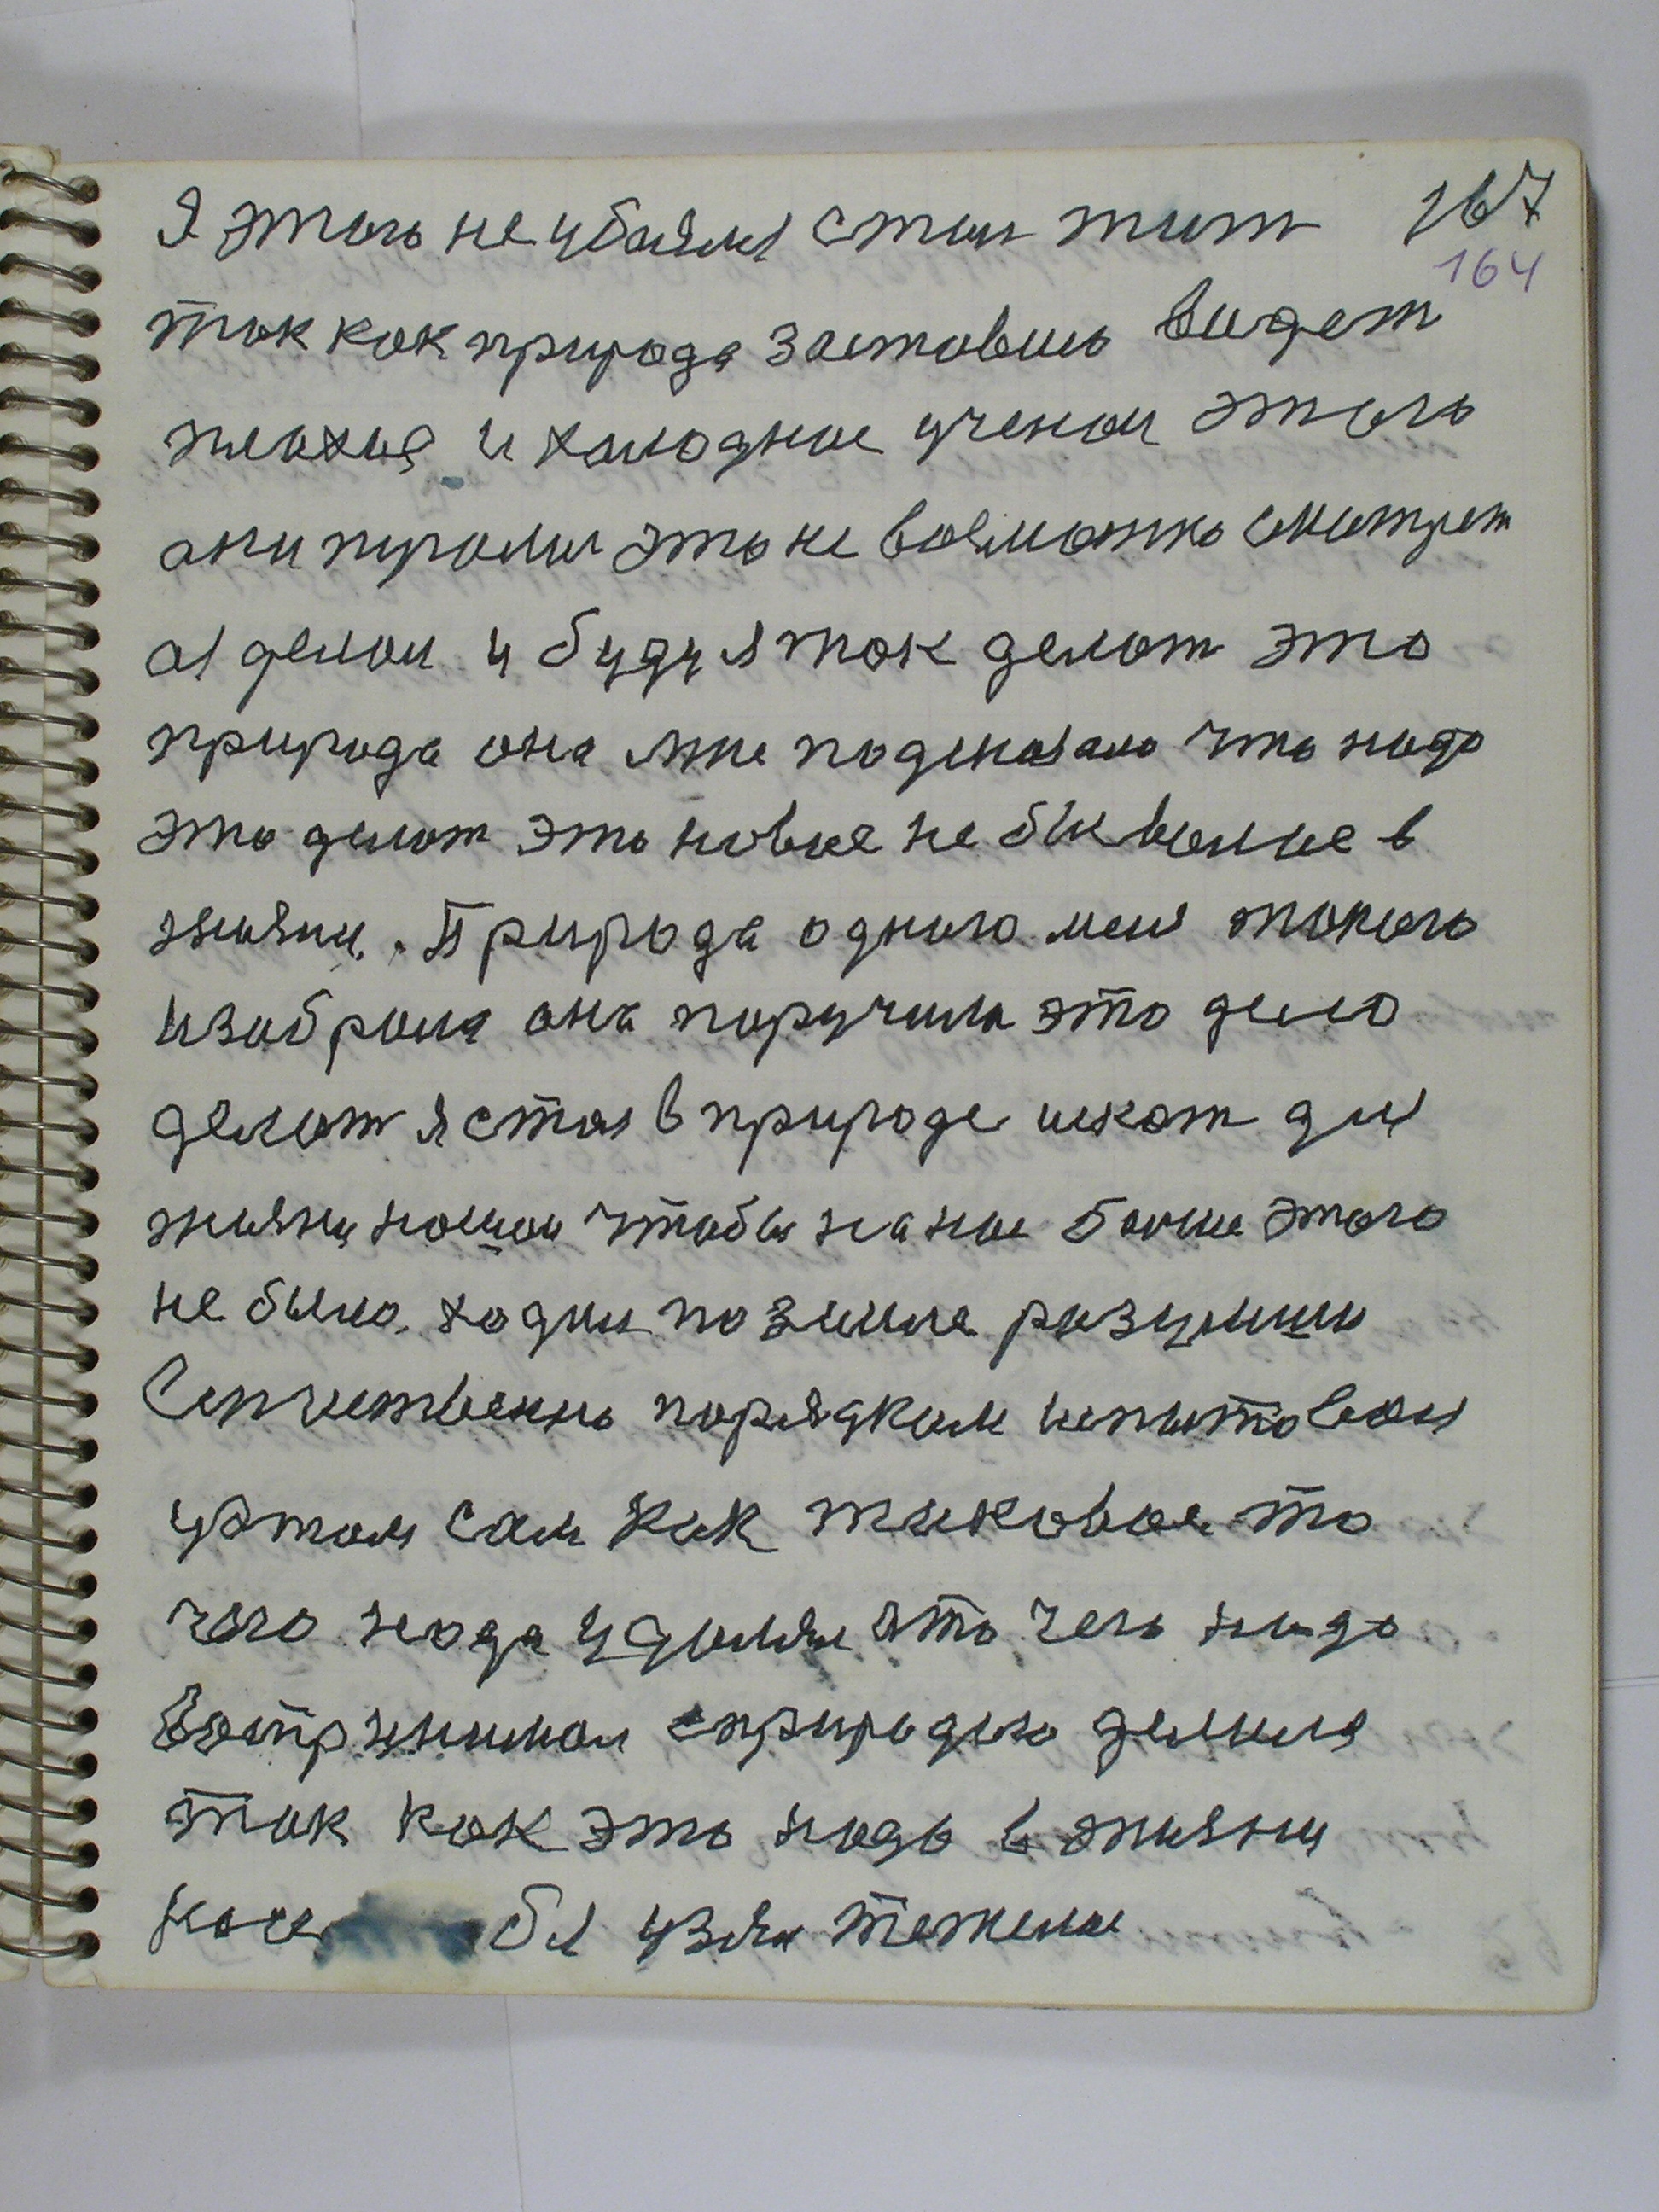 Я этого не убоялся стал жит 167
164
так как природа заставила видет
плохая и холодное ученои этого
они прошли это не возможно смотрет
а я делаи и буду я так делат это
природа она мне подсказала что надо
это делат это новае не бывалые в
жизни. Природа одного меня такого
избрала она поручила это дело
делат я стал в природе искат для
жизни нашои чтобы на нас больше этого
не было. ходил по земле разумши
Сепчественно порядком испытовал
у этом сам как таковои то
чего надо удалял а то чего надо
воспринимал с природою делился
так как это надо в жизни
бы узял тежелае